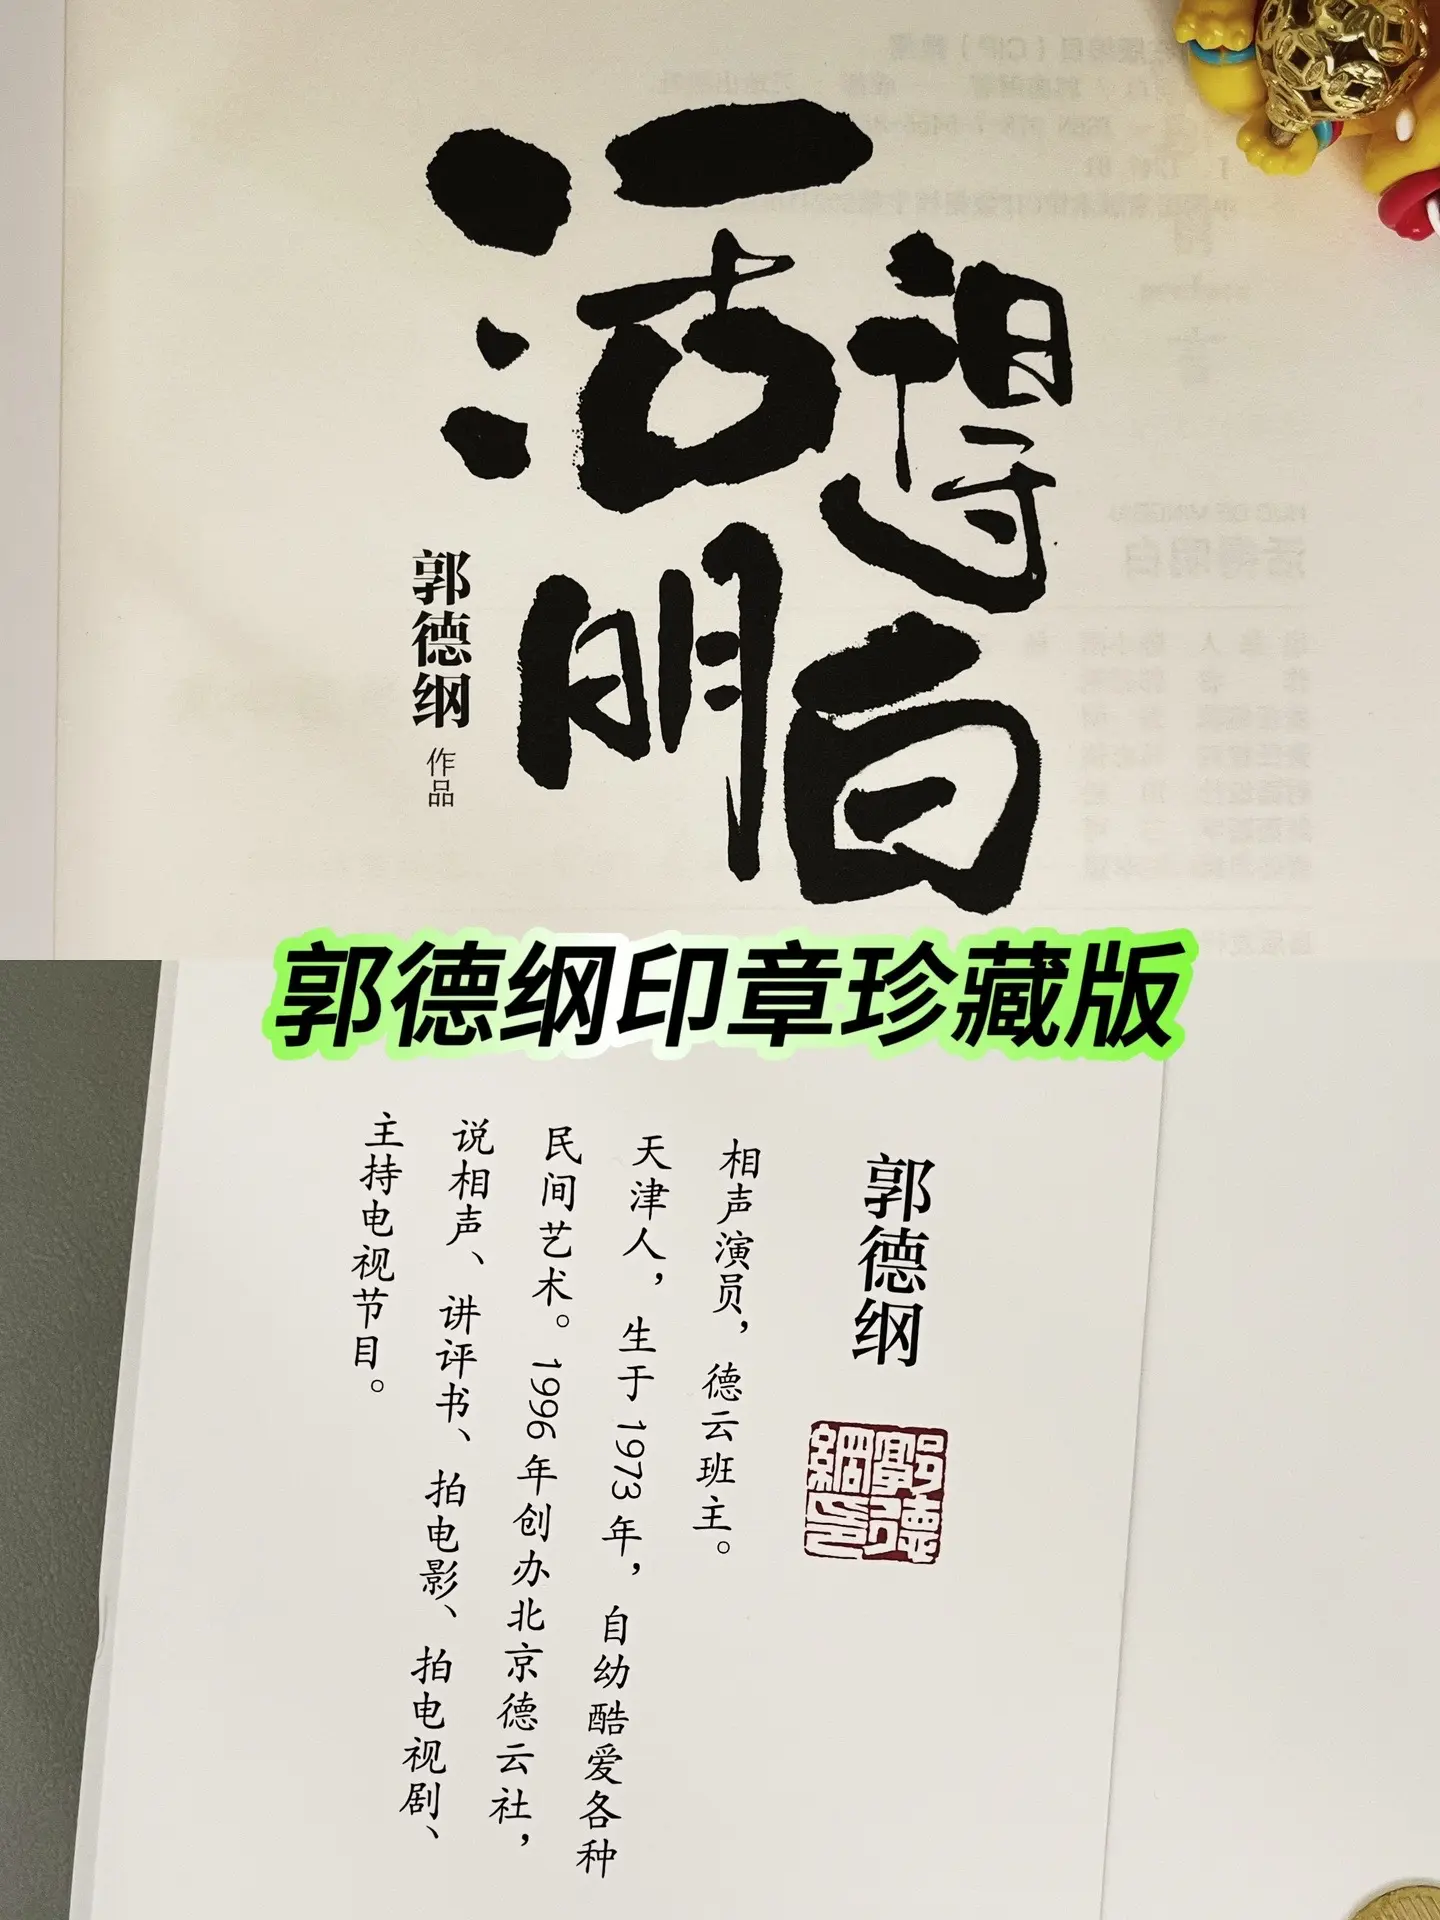 活得
明白
郭德纲
作品
郭德纲印章珍藏版
郭德纲
郭德纲印
相声演员，德云班主。
天津人，生于1973年，自幼酷爱各种
民间艺术。1996年创办北京德云社，
说相声、讲评书、拍电影、拍电视剧、
主持电视节目。